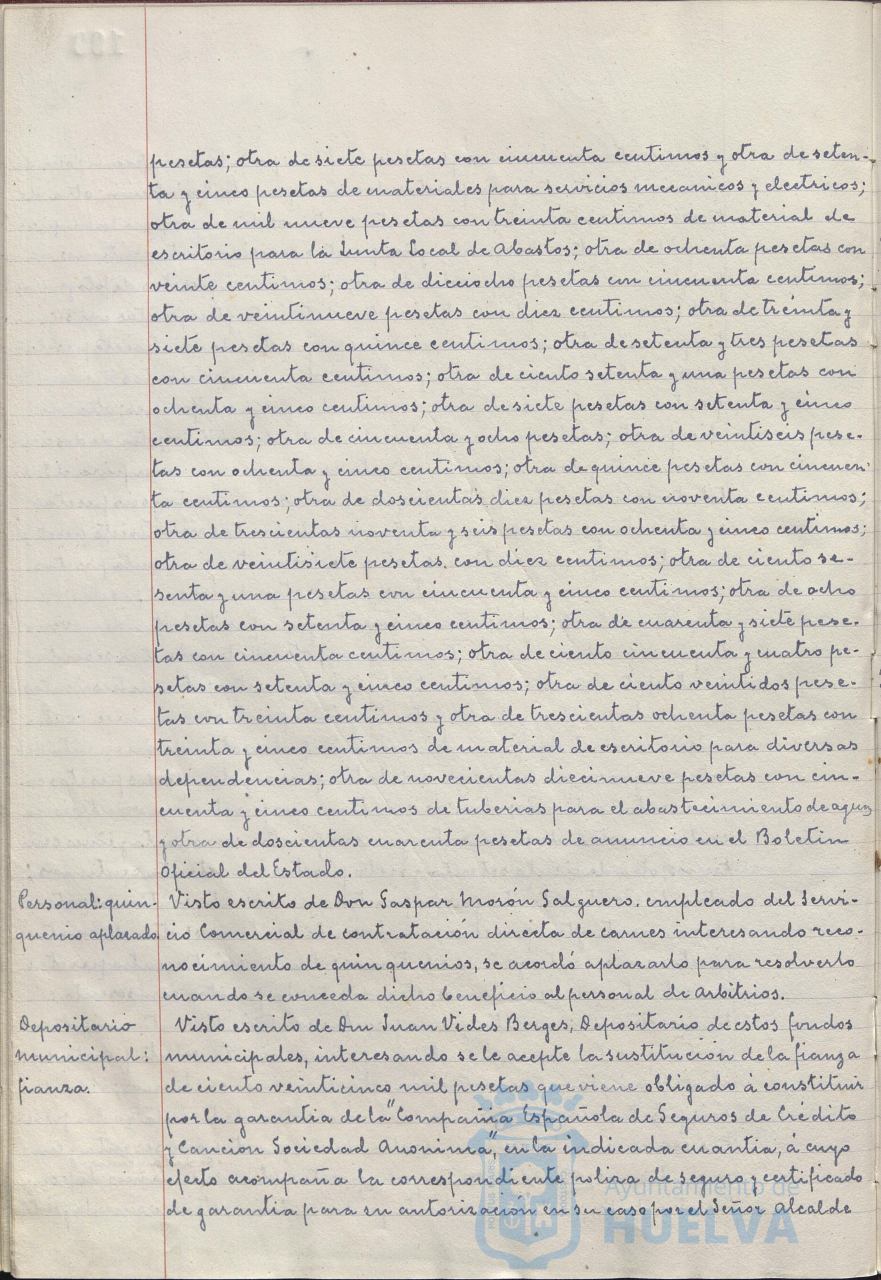 pesetas; otra de siete pesetas con cincuenta centimos y otra de seten-
ta y cinco pesetas de materiales para servicios mecanicos y electricos;
otra de mil nueve pesetas con treinta centimos de material de
escritorio para la Junta Local de Abastos; otra de ochenta pesetas con
veinte centimos; otra de dieciocho pesetas con cincuenta centimos;
otra de veintinueve pesetas con diez centimos; otra de treinta y
siete pesetas con quince centimos; otra de setenta y tres pesetas
con cincuenta centimos; otra de ciento setenta y una pesetas con
ochenta y cinco centimos; otra de siete pesetas con setenta y cinco
centimos; otra de cincuenta y ocho pesetas; otra de veintiseis pese-
tas con ochenta y cinco centimos; otra de quince pesetas con cincuen-
ta centimos; otra de doscientas diez pesetas con noventa centimos;
otra de trescientas noventa y seis pesetas con ochenta y cinco centimos;
otra de veintisiete pesetas. con diez centimos; otra de ciento se-
senta y una pesetas con cincuenta y cinco centimos; otra de ocho
pesetas con setenta y cinco centimos; otra de cuarenta y siete pese-
tas con cincuenta centimos; otra de ciento cincuenta y cuatro pe-
setas con setenta y cinco centimos; otra de ciento veintidos pese-
tas con treinta centimos y otra de trescientas ochenta pesetas con
treinta y cinco centimos de material de escritorio para diversas
dependencias; otra de novecientas diecinueve pesetas con cin-
cuenta y cinco centimos de tuberias para el abastecimiento de aguas
y otra de doscientas cuarenta pesetas de anuncio en el Boletin
Oficial del Estado.
Personal: quin-
quenio aplazado.
Visto escrito de Don Gaspar Morón Salguero. empleado del Servi-
cio Comercial de contratación directa de carnes interesando reco-
nocimiento de quinquenios, se acordó aplazarlo para resolverlo
cuando se conceda dicho beneficio al personal de Arbitrios.
Depositario
municipal:
fianza.
Visto escrito de Don Juan Vides Berges, Depositario de estos fondos
municipales, interesando se le acepte la sustitución de la fianza
de ciento veinticinco mil pesetas que viene obligado á constituir
por la garantia de la "Compañia Española de Seguros de Crédito
y Caución Sociedad Anonima", en la indicada cuantia, á cuyo
efecto acompaña la correspondiente poliza de seguro y certificado
de garantia para su autorización en su caso por el Señor Alcalde
Ayuntamiento de
HUELVA